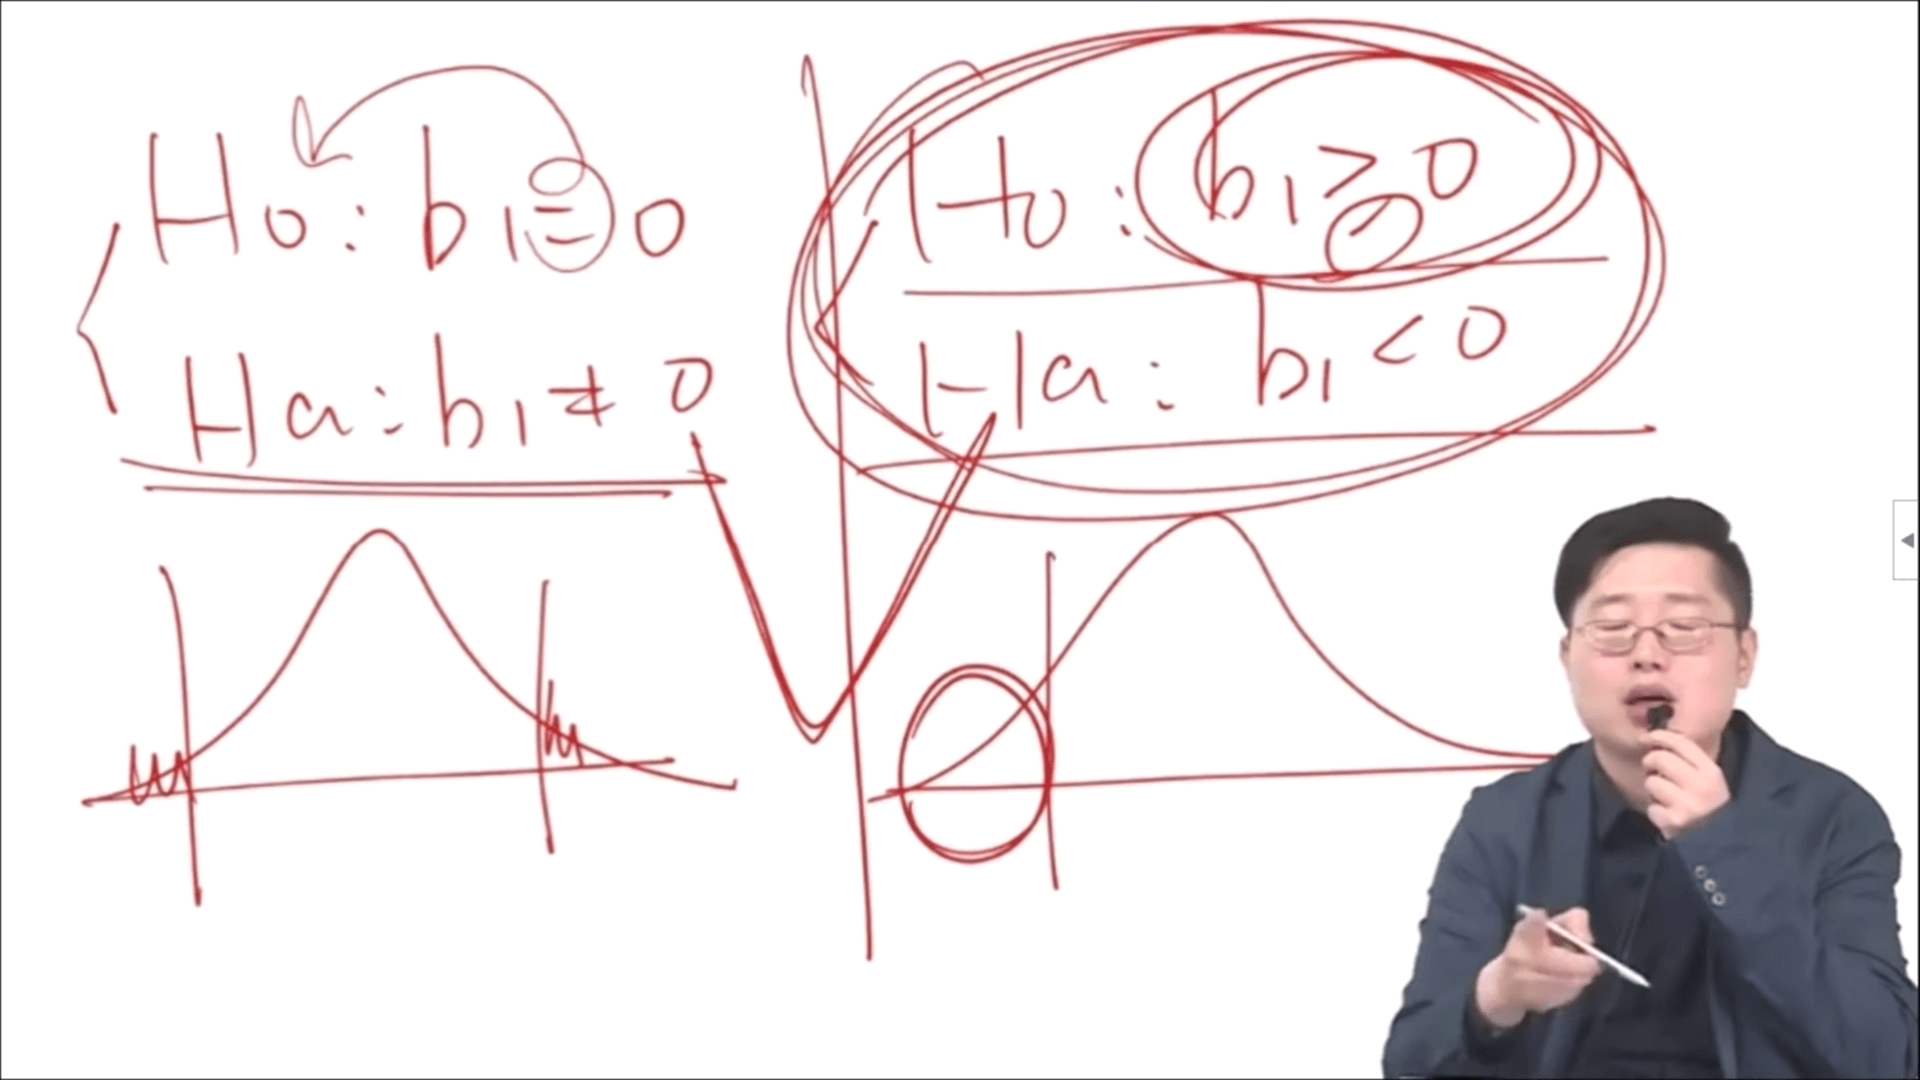 H0: b1=0
Ha: b1≠0
H0: b1≥0
Ha: b1<0